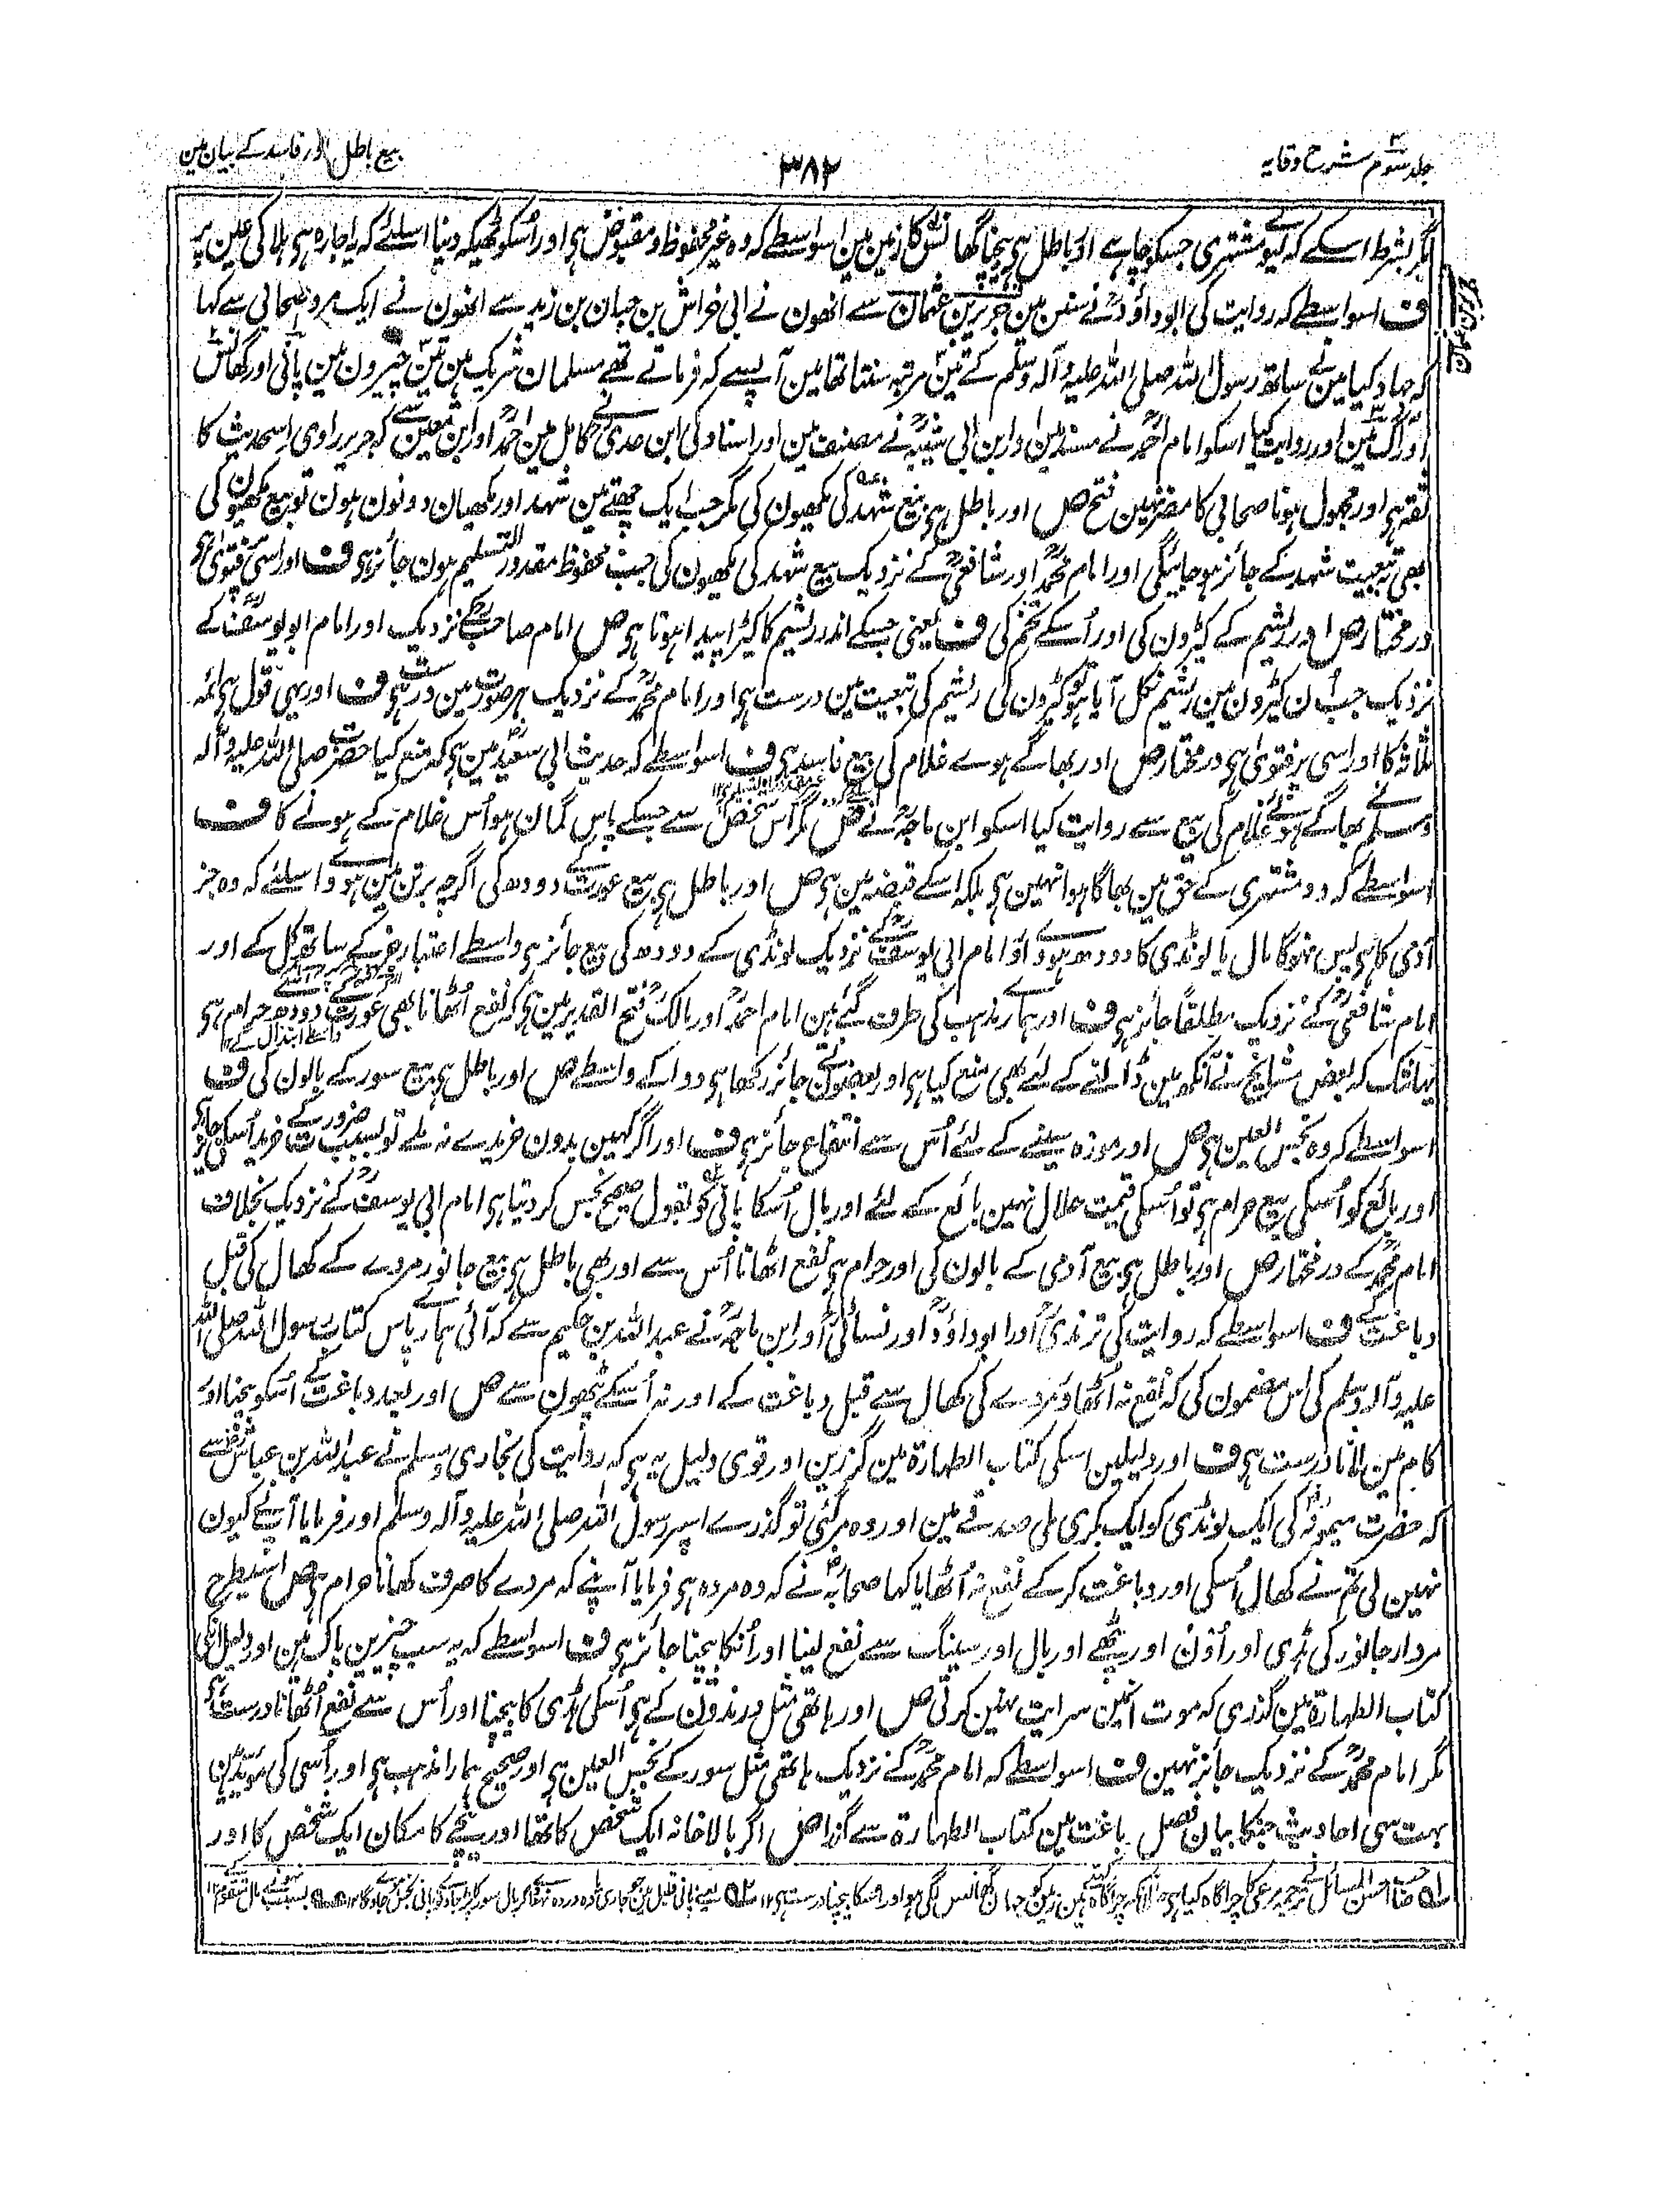 جلد سوم شرح وقایہ
۳۸۲
بیع باطل اور فاسد کے بیان مین
مگر بشرط اسکے کہ لیوے مشتری جسکو چاہے اور باطل ہی بیچنا گھانس کا زمین مین اسواسطے کہ وہ غیر محفوظ و مقبوض ہی اور اسکو ٹھیکہ دینا اسلئے کہ یہ اجارہ ہی ہلاکی عین پر
ف اسواسطے کہ روایت کی ابو داؤد نے سنن مین حریز بن عثمان سے انھون نے ابی خراش بن حبان بن زید سے انھون نے ایک مرد صحابی سے کہا
کہ جہاد کیا مین نے ساتھ رسول اللہ صلی اللہ علیہ وآلہ وسلم کے تین مرتبہ سنتا تھا مین آپسے کہ فرماتے تھے مسلمان شریک ہین تین چیزون مین پانی اور گھانس
اور آگ مین اور روایت کیا اسکو امام احمد نے مسند مین اور ابن ابی شیبہ نے مصنف مین اور اسناد کی ابن عدی نے کامل مین احمد اور ابن معین سے کہ حریز راوی اسحدیث کا
ثقہ ہی اور مجہول ہونا صحابی کا مضر نہین فتح ص اور باطل ہی بیع شہد کی مکھیون کی مگر جب ایک چھتے مین شہد اور مکھیان دونون ہون تو بیع مکھیون کی
بھی بہ تبعیت شہد کے جائز ہو جائیگی اور امام محمد اور شافعی کے نزدیک بیع شہد کی مکھیون کی جب محفوظ مقدور التسلیم ہون جائز ہی ف اور اسی پر فتویٰ ہی
در مختار ص اور ریشم کے کیڑون کی اور اُسکے تخم کی ف یعنی جسکے اندر ریشم کا کیڑا پیدا ہوتا ہی ص امام صاحب کے نزدیک اور امام ابو یوسف کے
نزدیک جب اُن کیڑون مین ریشم نکل آیا ہو تو کیڑون کی ریشم کی تبعیت مین درست ہی اور امام محمد کے نزدیک ہر صورت مین درست ہی ف اور یہی قول ہی ائمہ
ثلاثہ کا اور اسی پر فتویٰ ہی در مختار ص اور بھاگے ہوے غلام کی بیع فاسد ہی ف اسواسطے کہ حدیث ابی سعید مین ہی کہ منع کیا حضرت صلی اللہ علیہ وآلہ
وسلم نے بھاگے ہوئے غلام کی بیع سے روایت کیا اسکو ابن ماجہ نے ص مگر اُس شخص سے جسکے پاس گمان ہو اُس غلام کے ہونے کا ف
اسواسطے کہ وہ مشتری کے حق مین بھاگا ہوا نہین ہی بلکہ اسکے قبضہ مین ہی ص اور باطل ہی بیع عورت کے دودھ کی اگرچہ برتن مین ہووے اسلئے کہ وہ جز
آدمی کا ہی پس نہوگا مال یا لونڈی کا دودھ ہووے اور امام ابی یوسف کے نزدیک لونڈی کے دودھ کی بیع جائز ہی واسطے اعتبار جز کے ساتھ کل کے اور
امام شافعی کے نزدیک مطلقاً جائز ہی ف اور ہمارے مذہب کی طرف گئے ہین امام احمد اور مالک فتح القدیر مین ہی کہ نفع اُٹھانا بھی عورت کے دودھ سے حرام ہی
یہانتک کہ بعض مشایخ نے آنکھ مین ڈالنے کے لئے بھی منع کیا ہی اور بعضون نے جائز رکھا ہی دوا کے واسطے ص اور باطل ہی بیع سور کے بالون کی ف
اسواسطے کہ وہ نجس العین ہی ص اور موزہ سینے کے لئے اُس سے انتفاع جائز ہی ف اور اگر کہین بدون خریدے نہ ملے تو بسبب ضرورت کے خرید اُسکی جائز ہی
اور بائع کو اُسکی بیع حرام ہی تو اُسکی قیمت حلال نہین بائع کے لئے اور بال اُسکا پانی کو بقول صحیح نجس کر دیتا ہی امام ابی یوسف کے نزدیک بخلاف
امام محمد کے در مختار ص اور باطل ہی بیع آدمی کے بالون کی اور حرام ہی نفع اٹھانا اُس سے اور بھی باطل ہی بیع جانور مردے کے کھال کی قبل
دباغت کے ف اسواسطے کہ روایت کی ترمذی اور ابو داؤد اور نسائی اور ابن ماجہ نے عبد اللہ بن حکیم سے کہ آئی ہمارے پاس کتاب رسول اللہ صلی اللہ
علیہ وآلہ وسلم کی اس مضمون کی کہ نفع نہ اُٹھاؤ مردے کی کھال سے قبل دباغت کے اور نہ اُسکے پٹھون سے ص اور بعد دباغت کے اُسکو بیچنا اور
کام مین لانا درست ہی ف اور دلیلین اسکی کتاب الطہارۃ مین گزرین اور قوی دلیل یہ ہی کہ روایت کی بخاری و مسلم نے عبد اللہ بن عباس سے
کہ حضرت میمونہ کی ایک لونڈی کو ایک بکری ملی صدقے مین اور وہ مر گئی تو گذرے اسپر رسول اللہ صلی اللہ علیہ وآلہ وسلم اور فرمایا آپنے کیون
نہین لی تم نے کھال اُسکی اور دباغت کر کے نفع نہ اُٹھایا کہا صحابہ نے کہ وہ مردہ ہی فرمایا آپنے کہ مردے کا صرف کھانا حرام ہی ص اسیطرح
مردار جانور کی ہڈی اور اُون اور پٹھے اور بال اور سینگ سے نفع لینا اور اُنکا بیچنا جائز ہی ف اسواسطے کہ یہ سب چیزین پاک ہین اور دلیل اسکی
کتاب الطہارۃ مین گذری کہ موت انمین سرایت نہین کرتی ص اور ہاتھی مثل درندون کے ہی اُسکی ہڈی کا بیچنا اور اُس سے نفع اُٹھانا درست ہی
مگر امام محمد کے نزدیک جائز نہین ف اسواسطے کہ امام محمد کے نزدیک ہاتھی مثل سور کے نجس العین ہی اور صحیح ہمارا مذہب ہی اور اُسی کی مؤید ہین
بہت سی احادیث جنکا بیان فصل دباغت مین کتاب الطہارۃ سے گزرا ص اگر بالاخانہ ایک شخص کا تھا اور نیچے کا مکان ایک شخص کا اور
احسن المسائل نے ترجمہ مرعی کا چراگاہ کیا ہی چراگاہ ہین زمین کو جہان گھانس لگی ہو اور اسکا بیچنا درست ہی ۱۲